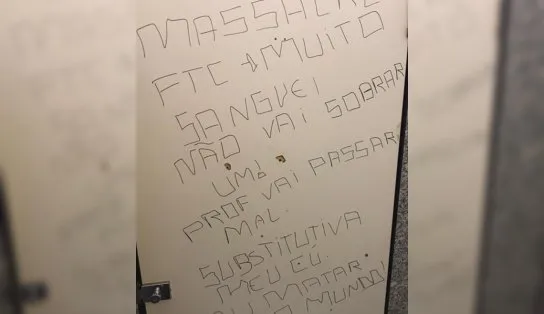 MASSACRE
FTC + MUITO
SANGUE!
NÃO VAI SOBRAR
UM!
PROF VAI PASSAR
MAL.
SUBSTITUTIVA
MEU CÚ.
MATAR
O MUNDO!